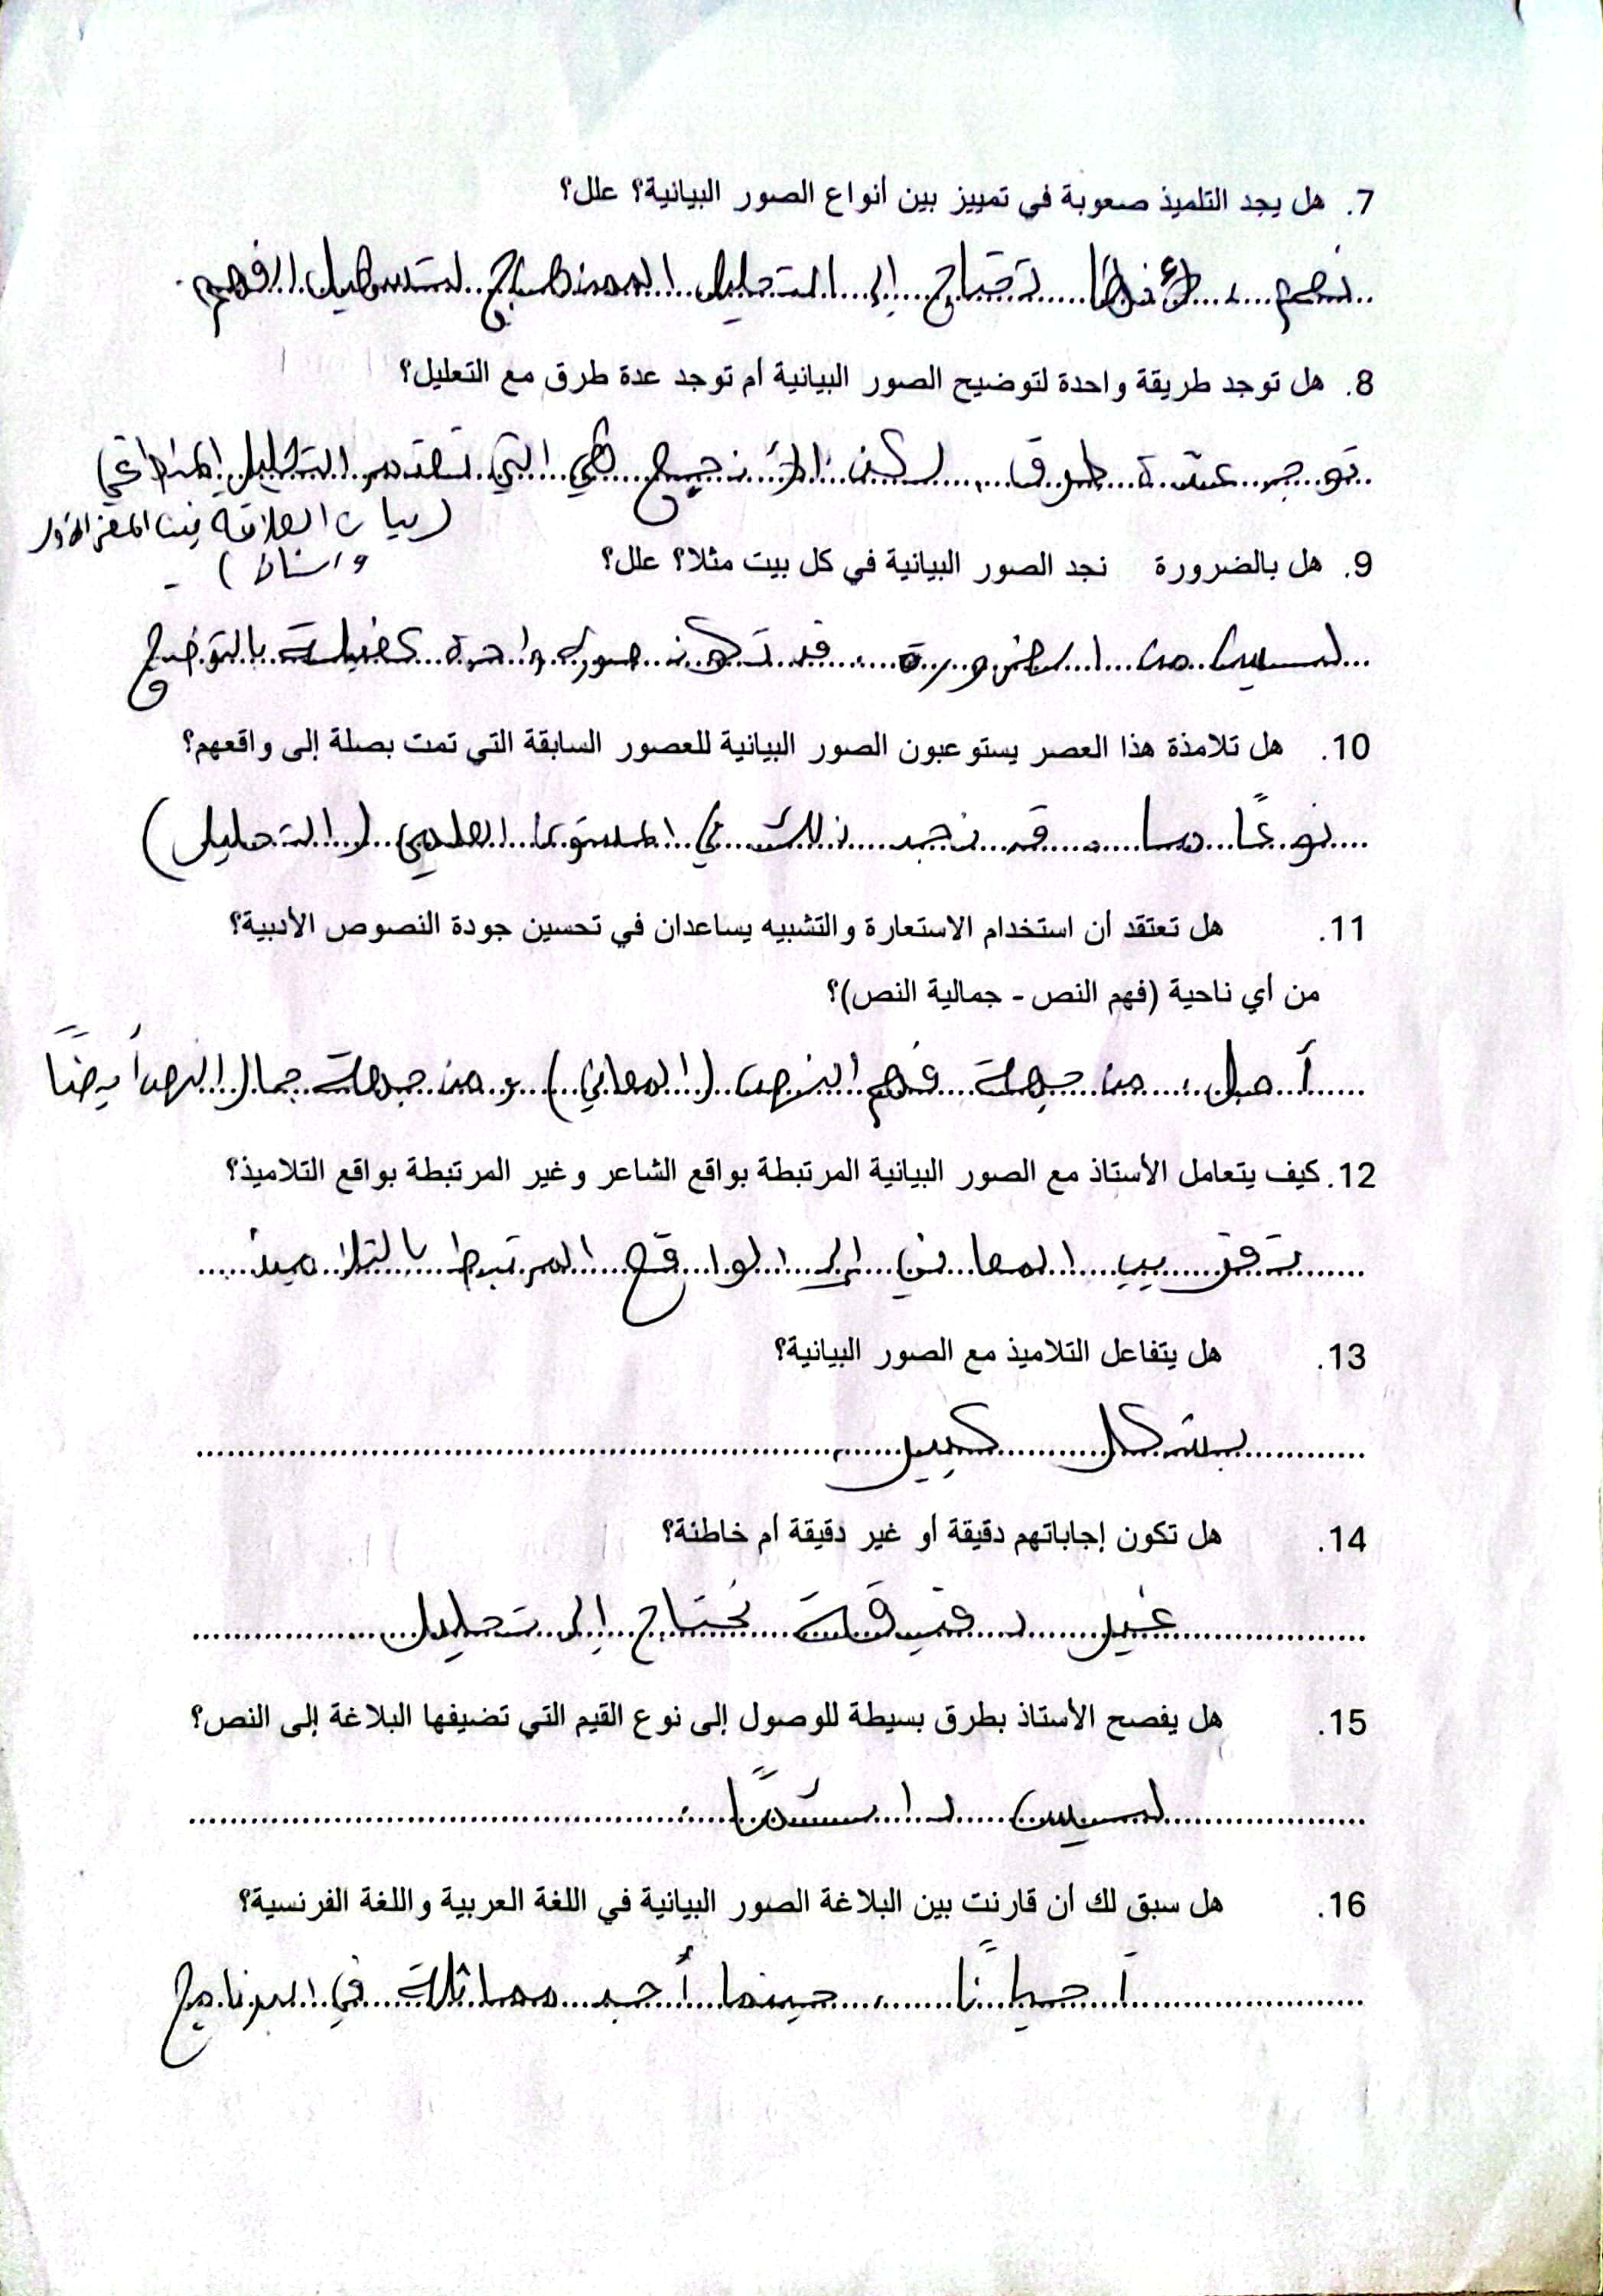 7. هل يجد التلميذ صعوبة في تمييز بين أنواع الصور البيانية؟ علل؟
نعم، لأنها تحتاج إلى التحليل الممنهج لتسهيل الفهم.
8. هل توجد طريقة واحدة لتوضيح الصور البيانية أم توجد عدة طرق مع التعليل؟
توجد عدّة طرق، لكن الأنجح هي التي تعتمد التحليل
(بيان العلاقة بين المعنى الأول
والثاني)
9. هل بالضرورة نجد الصور البيانية في كل بيت مثلا؟ علل؟
ليس من الضرورة، قد تكون صورة واحدة كفيلة بالتوضيح
10. هل تلامذة هذا العصر يستوعبون الصور البيانية للعصور السابقة التي تمت بصلة إلى واقعهم؟
نوعًا ما، قد نجد ذلك في المستوى العلمي (التحليلي)
11. هل تعتقد أن استخدام الاستعارة والتشبيه يساعدان في تحسين جودة النصوص الأدبية؟
من أي ناحية (فهم النص - جمالية النص)؟
أجل، من جهة فهم النص (المعاني) ومن جهة جمال النص أيضًا
12. كيف يتعامل الأستاذ مع الصور البيانية المرتبطة بواقع الشاعر وغير المرتبطة بواقع التلاميذ؟
تقريب المعاني إلى الواقع المرتبط بالتلاميذ
13. هل يتفاعل التلاميذ مع الصور البيانية؟
بشكل كبير
14. هل تكون إجاباتهم دقيقة أو غير دقيقة أم خاطئة؟
غير دقيقة تحتاج إلى تحليل
15. هل يفصح الأستاذ بطرق بسيطة للوصول إلى نوع القيم التي تضيفها البلاغة إلى النص؟
ليس دائمًا
16. هل سبق لك أن قارنت بين البلاغة الصور البيانية في اللغة العربية واللغة الفرنسية؟
أحيانًا، حينما أجد مماثلة في البرنامج